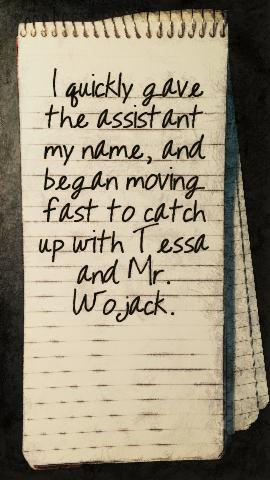 I quickly gave
the assistant
my name, and
began moving
fast to catch
up with Tessa
and Mr.
Wojack.